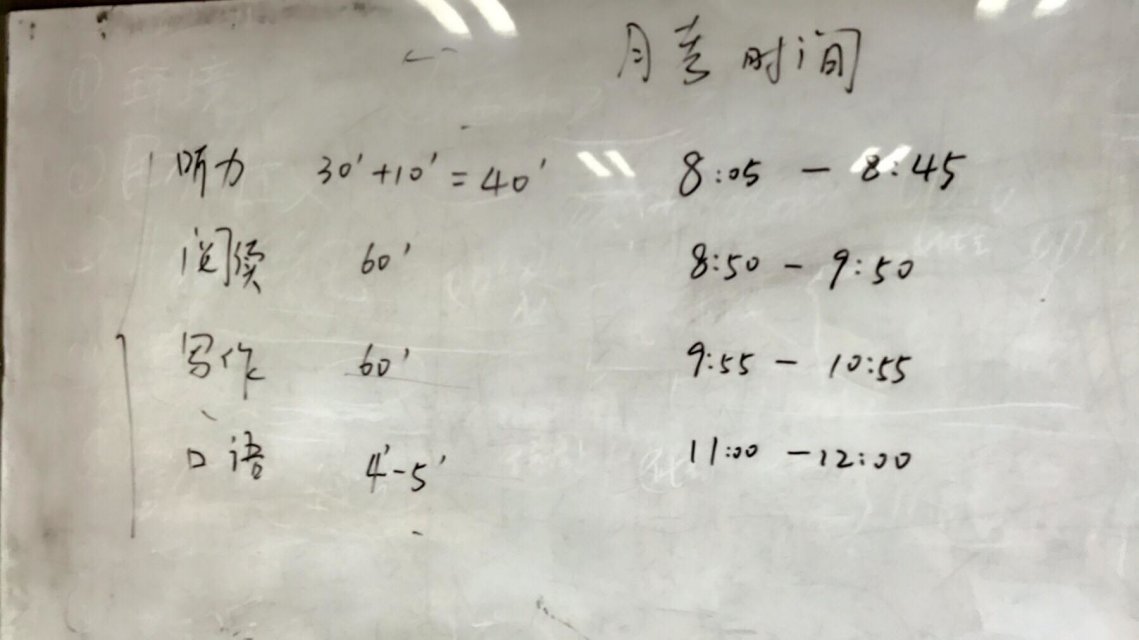 月考时间
听力 30'+10'=40' 8:05 — 8:45
阅读 60' 8:50 — 9:50
写作 60' 9:55 — 10:55
口语 4'-5' 11:00 — 12:00